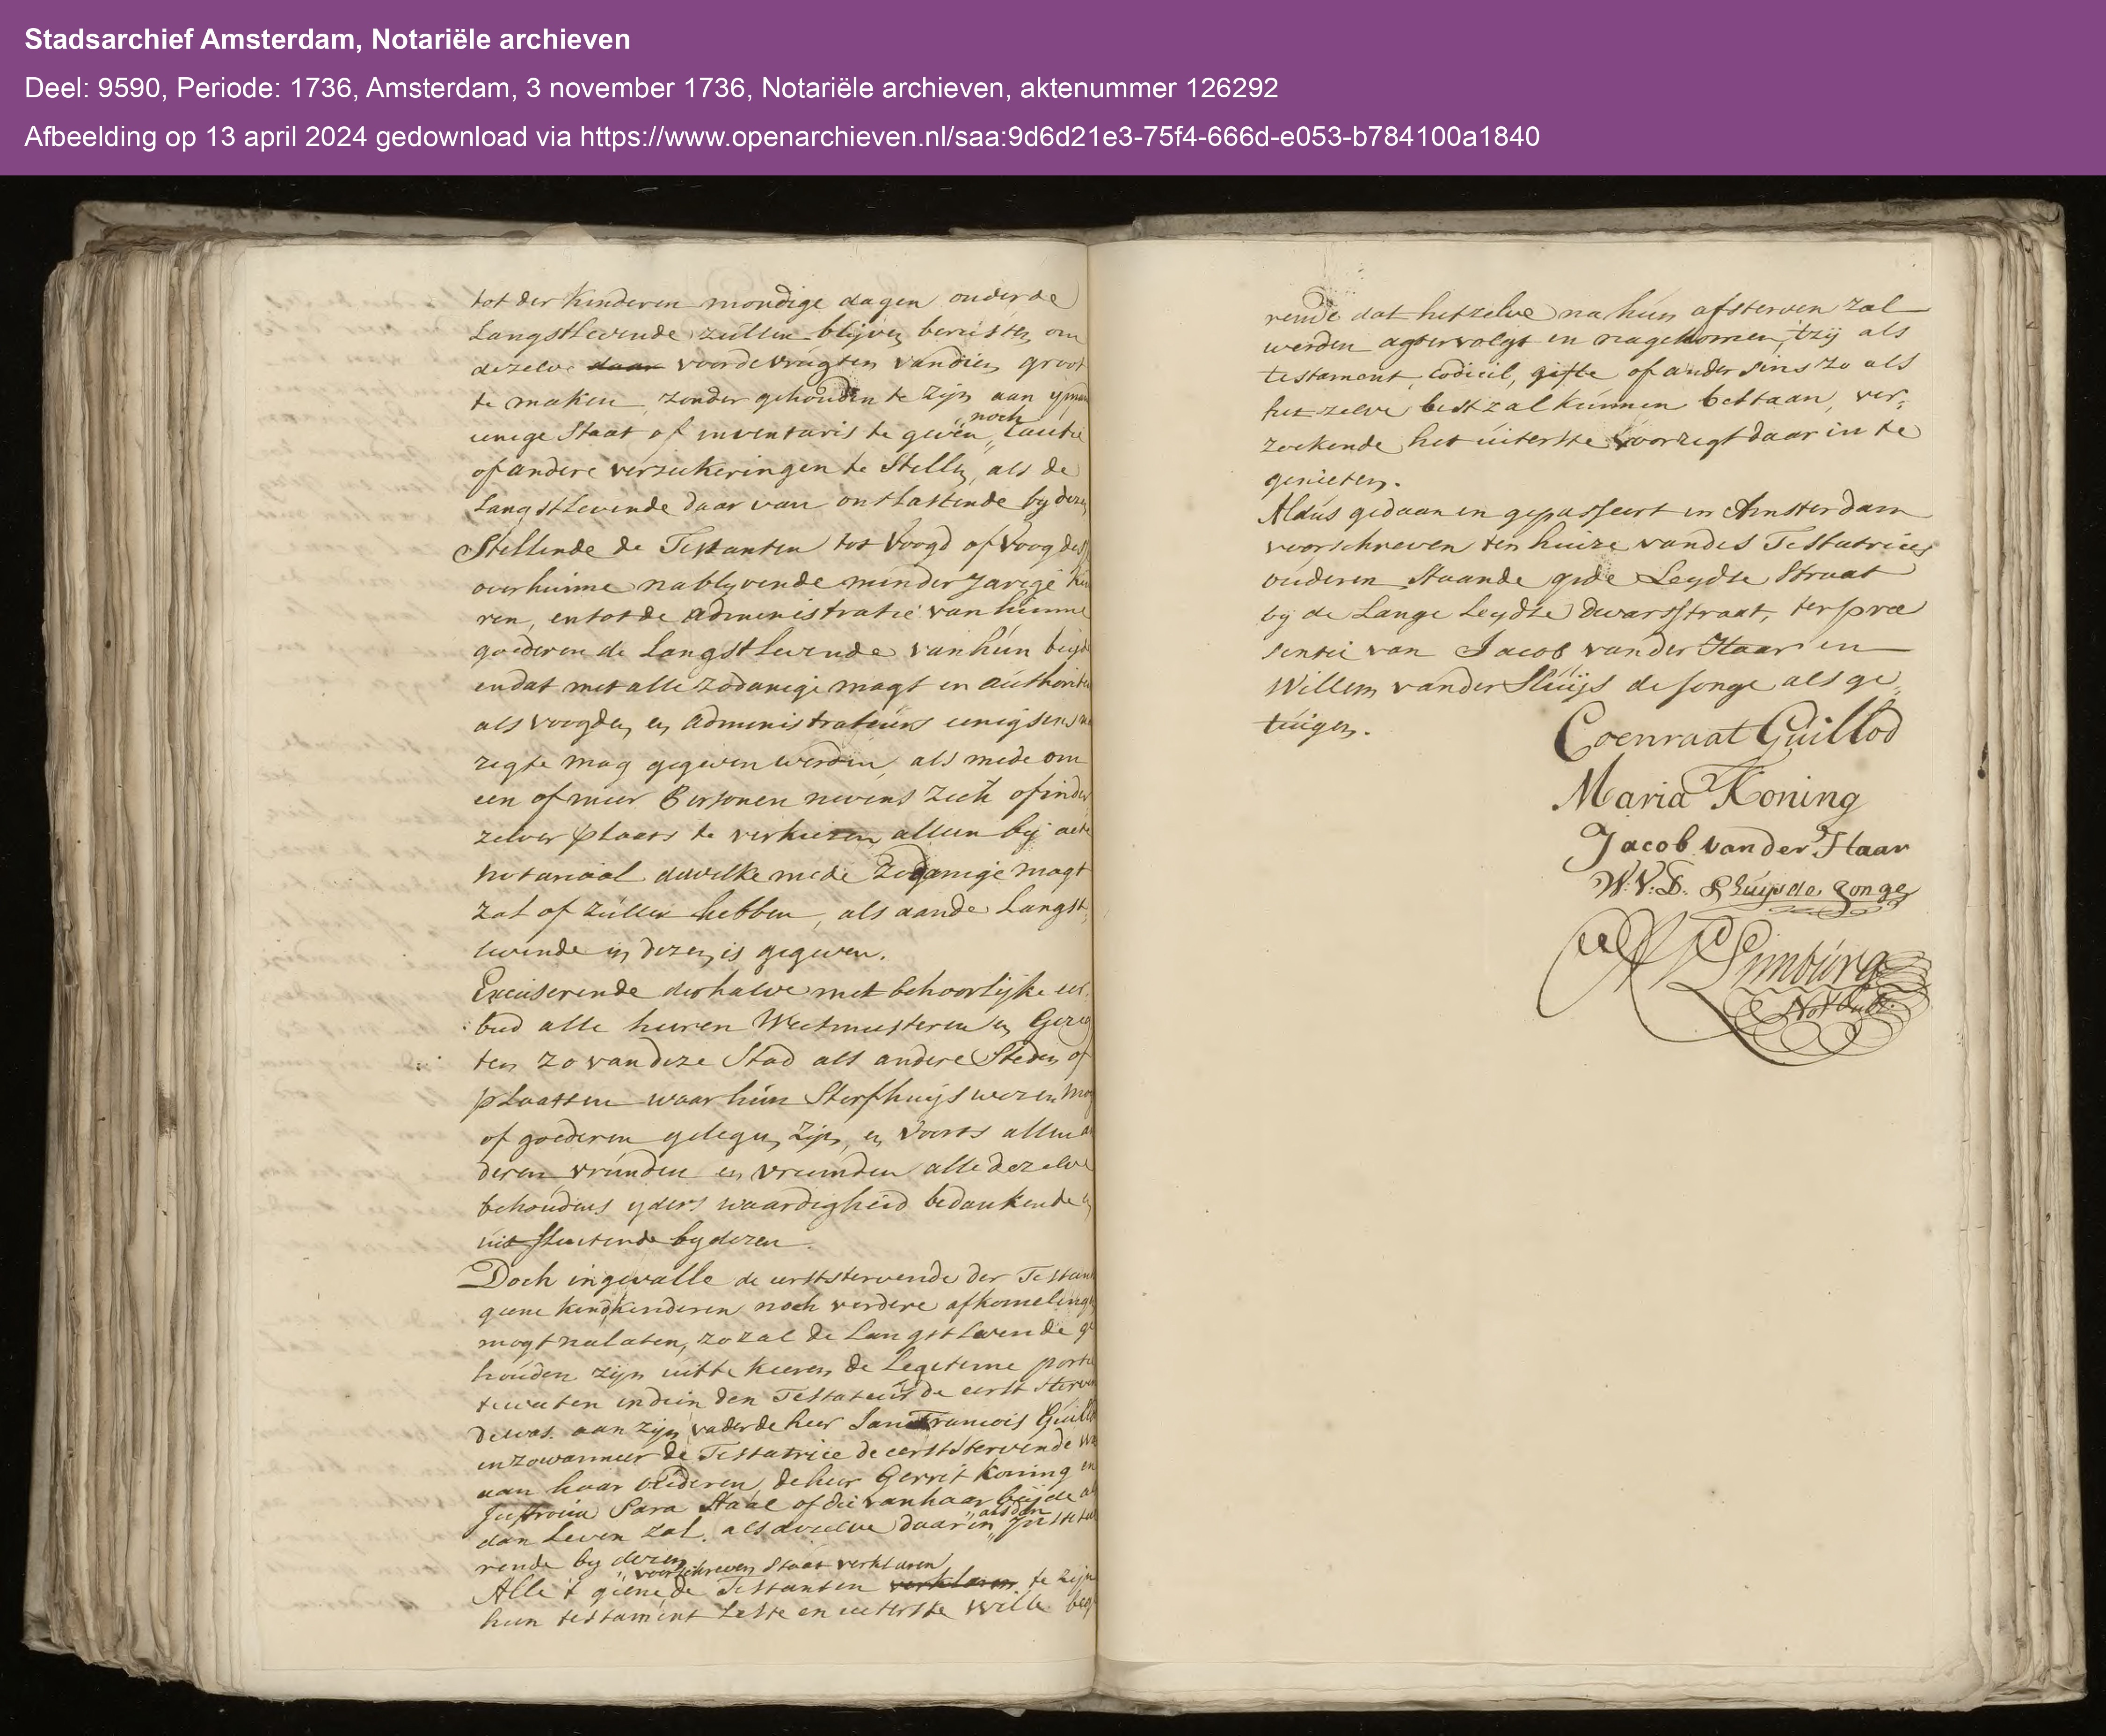 Stadsarchief Amsterdam, Notariële archieven
Deel: 9590, Periode: 1736, Amsterdam, 3 november 1736, Notariële archieven, aktenummer 126292
Afbeelding op 13 april 2024 gedownload via https://www.openarchieven.nl/saa:9d6d21e3-75f4-666d-e053-b784100a1840
tot der kinderen mondige dagen onder de
Langstlevende zullen blijven berusten, om
dezelve daar voor de vrugten van dien groot
te maken, zonder gehouden te zijn aan
eenige Staat of inventaris te geven, noch Cautie
of andere verzekeringen te Stellen, als de
Langstlevende daar van ontlastende by dezen
Stellende de Testanten tot Voogd of Voogdes
over hunne nablyvende minderjarige
ren, en tot de administratie van hunne
goederen de Langstlevende van hun beijde
en dat met alle zodanige magt en authoriteit
als voogden en administrateurs eenigsins
regte mag gegeven werden, als mede om
een of meer Personen nevens zich of in der
zelver plaats te verkiezen, alleen bij acte
notariaal dewelke mede zodanige magt
zal of zullen hebben, als aande Langst,
levende in dezen is gegeven.
Excuserende derhalve met behoorlijke eer,
bied alle heeren Weesmeesteren en
ten zo van deze Stad als andere Steden of
plaatsen waar hun Sterfhuijs wezen
of goederen gelegen zijn, en voorts allen
deren vrunden en vreemden alle dezelve
behoudens yders waardigheid bedankende
uit sluitende by dezen.
Doch ingevalle de eerststervende der
geene kind kinderen noch verdere afkomelingen
mogt nalaten, zo zal de Langstlevende
houden zijn uit te keeren de Legitime portie
te weten indien den Testateur de eerst
de was. aan zijn vader de heer Jan Francois
en zo wanneer de Testatrice de eerststervende
aan haar ouderen, de heer Gerrit Koning en
Juffrouw Sara Staal of die van haar beijde
dan Leven zal. alsdan dezelve daar in
rende by dezen
Alle 't geene voorschreven Staat verklaren de Testanten verklaren te zijn
hun testament Leste en uiterste wille
rende dat hetzelve na hun afsterven zal
werden agtervolgt en nagekomen, 't zij als
testament, Codicil, gifte of andersins zo als
het zelve best zal kunnen bestaan, ver,
zoekende het uiterste voorregt daar in te
genieten.
Aldus gedaan en gepasseert in Amsterdam
voorschreven ten huize van des Testatrices
ouderen Staande op de Leydse Straat
bij de Lange Leydse dwarsstraat, ter præ
sentie van Jacob vander Haar en
Willem vander Sluijs de Jonge als ge,
tuigen.
Coenraat Guillod
Maria Koning
Jacob vander Haar
W: V: D. Sluijs de Jonge
Limburg
Not Publ: